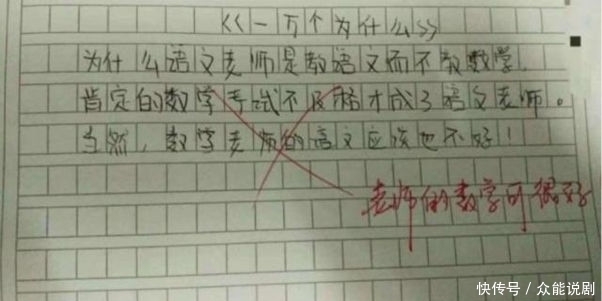 《一万个为什么》
为什么语文老师是教语文而不教数学,
肯定的数学考试不及格才成了语文老师。
当然,数学老师的语文应该也不好!
老师的数学可很好
快传号/众能说剧